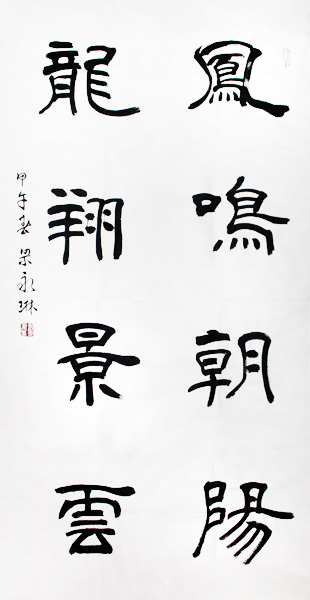 鳳鳴朝陽
龍翔景雲
甲午春 梁永琳